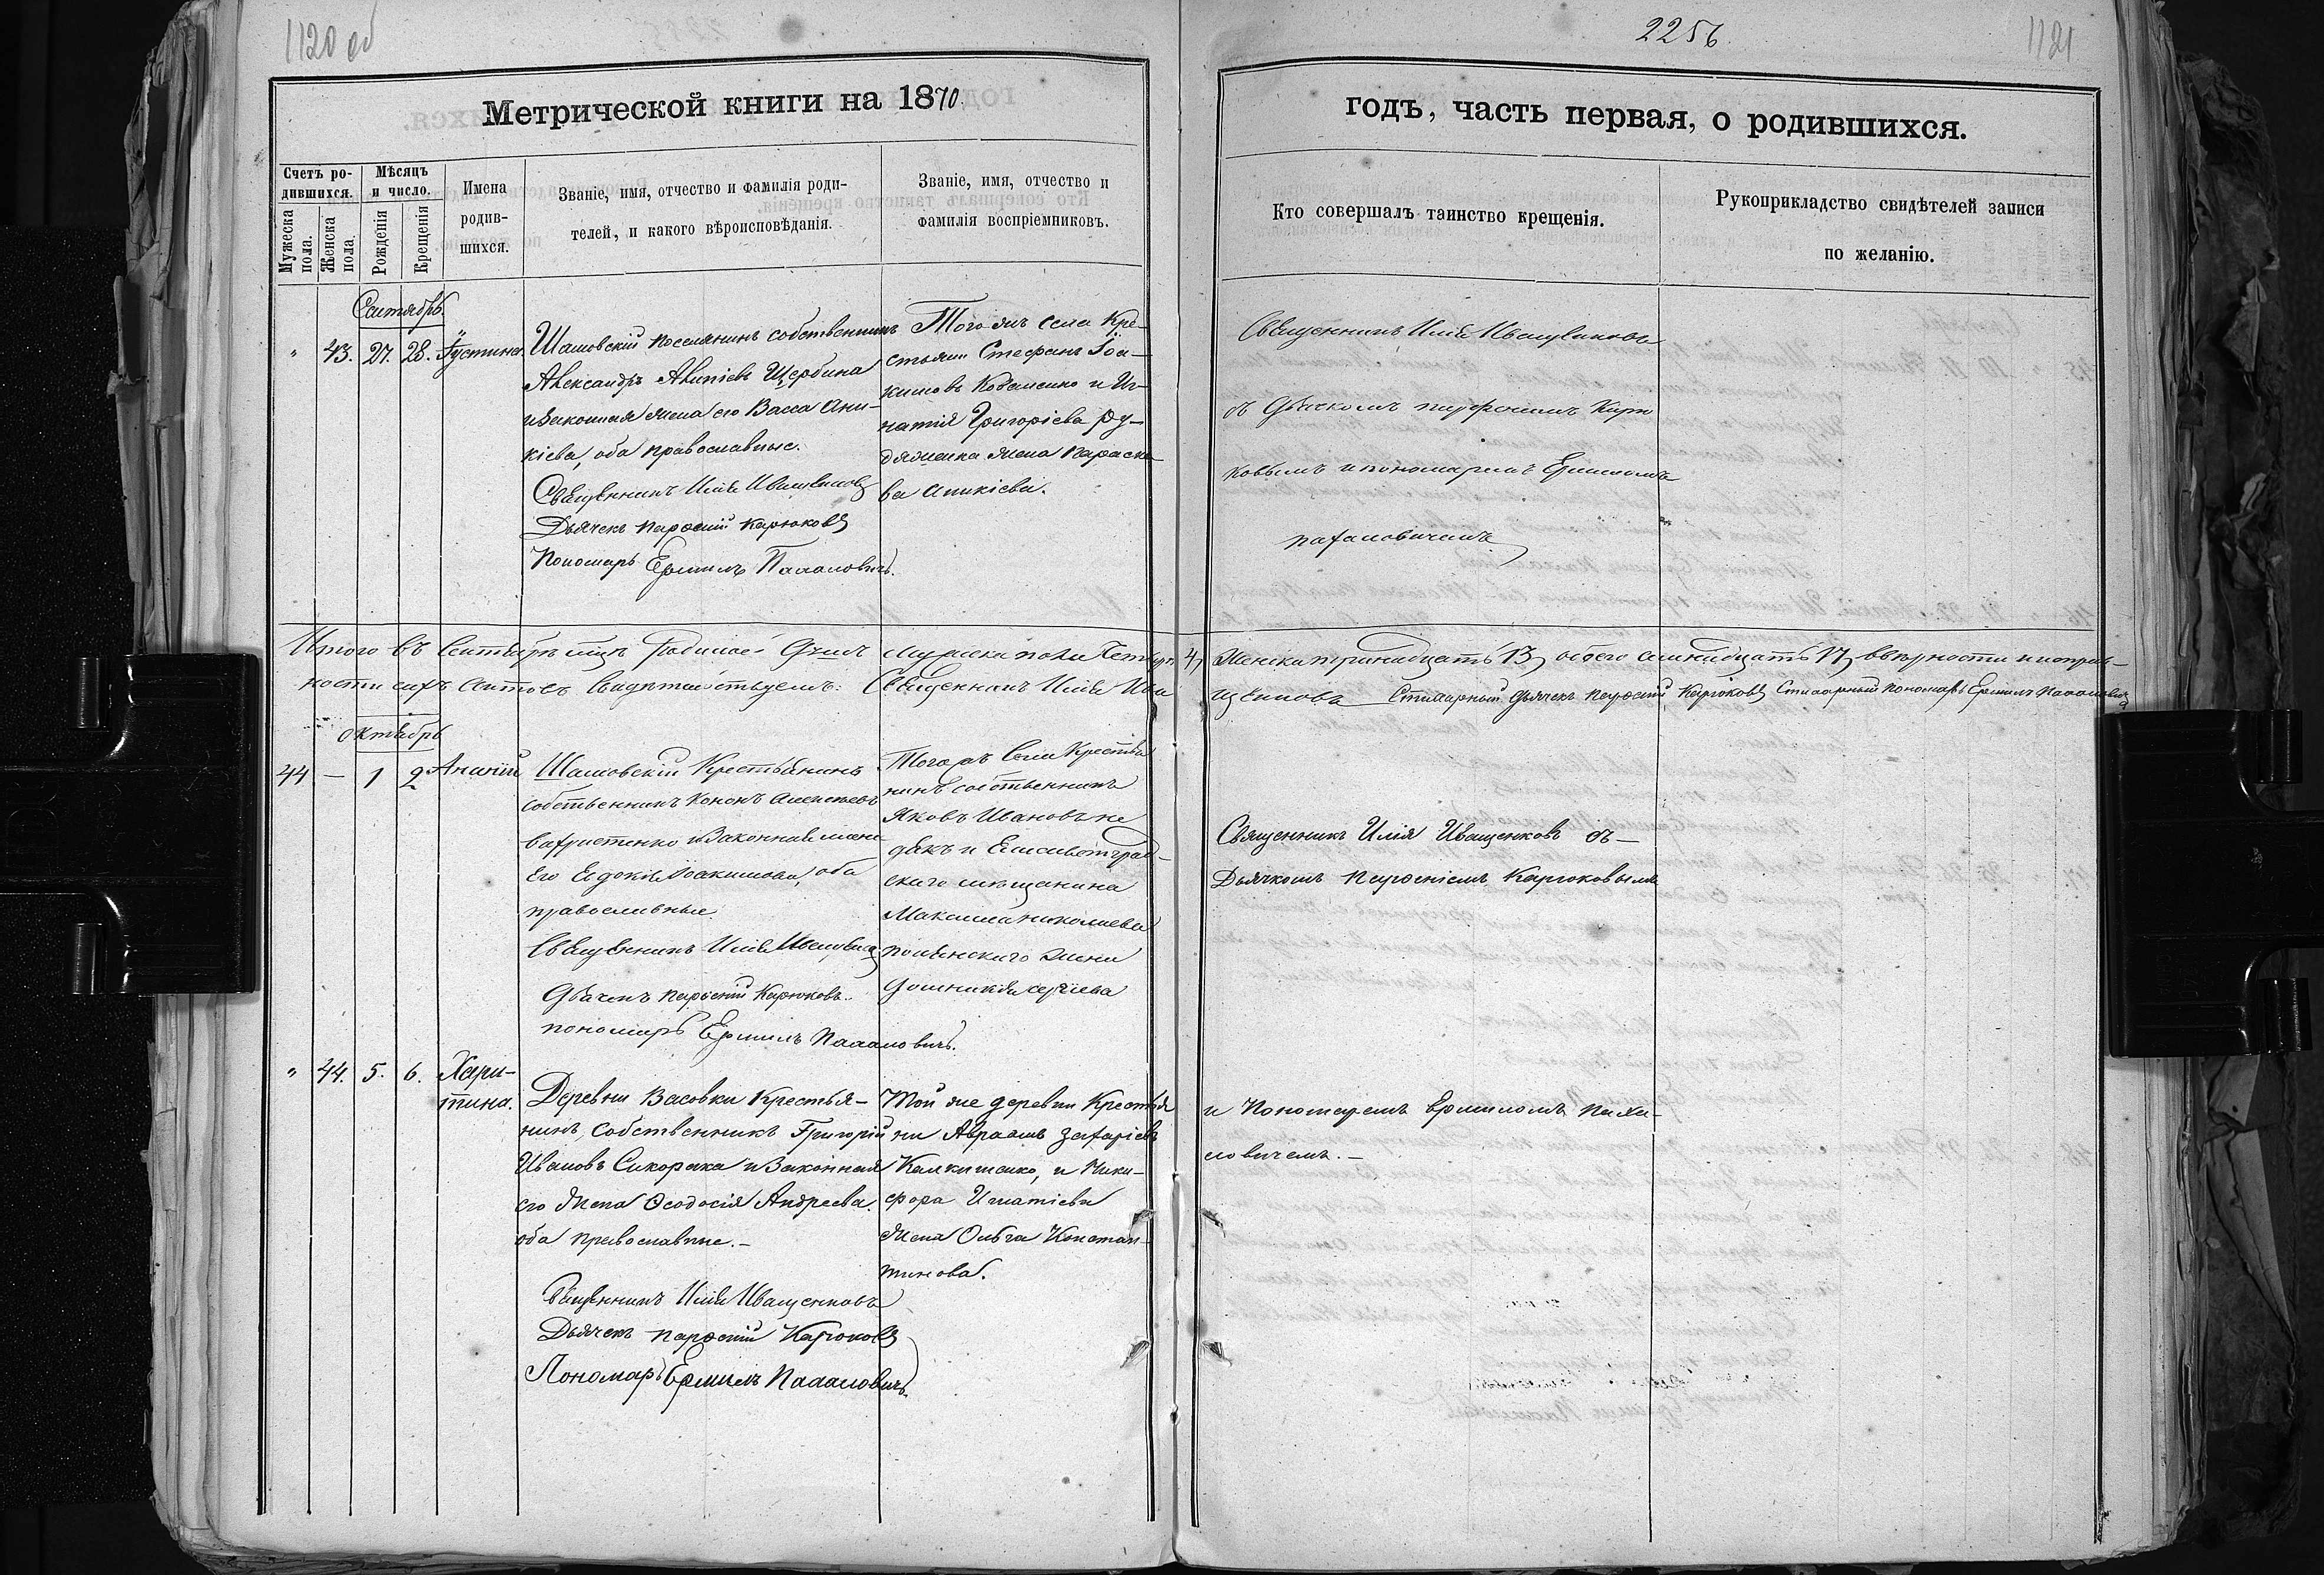 1120 об
2256.
1121
Метрической книги на 1870
годъ, часть первая, о родившихся.
Счетъ ро-
дившихся.
Мужеска
пола.
Женска
пола.
Мѣсяцъ
и число.
Рожденія
Крещенія
Имена
родив-
шихся.
Званіе, имя, отчество и фамилія роди-
телей, и какого вѣроисповѣданія.
Званіе, имя, отчество и
фамилія воспріемниковъ.
Кто совершалъ таинство крещенія.
Рукоприкладство свидѣтелей записи
по желанію.
Сентябрь
" 43. 27. 28.
Шамовскій поселянинъ собственникъ
Александръ Щербина
и законная жена его Васса Ани-
кіева, оба православные.
Священникъ Илія Иващенковъ
Дьячекъ Парфеній Карюковъ
Пономарь Ермилъ Пахаловичъ.
Того жъ села Кре-
Стефанъ Іоа-
кимовъ Коваленко и Иг-
натія Григорієва Ру-
жена Параске-
ва Аникіева.
Священникъ Илія Иващенковъ
съ Дьячкомъ Парфеніемъ Карю
ковымъ и пономаремъ Ермиломъ
Пахаловичемъ
Итого въ Сентябрѣ Мужеска пола Четыре 4, Женска тринадцать 13, обоего семнадцать 17, въ вѣрности и исправ-
ности сихъ актовъ свидѣтельствуемъ: Священникъ Илія Ива
щенковъ Дьячекъ Парфеній Карюковъ Пономарь Ермилъ Пахаловичъ
Октябрь
44 — 1 2 Ананій
Шамовскій Крестьянинъ
собственникъ Кононъ Алексѣевъ
и законная жена
Его Евдокія Іоакимова, оба
православные
Священникъ Илія
Дьячекъ Парфеній Карюковъ.
пономарь Ермилъ Пахаловичъ.
Того жъ Села Крестья
нинъ собственникъ
Яковъ Ивановъ
и Елисаветград-
скаго мѣщанина
Максима Николаева
жена
Священникъ Илія Иващенковъ съ—
Дьячкомъ Парфеніемъ Карюковымъ
" 44. 5. 6. Хари-
тина.
Деревни Васовки Крестья-
нинъ, собственникъ Григорій
Ивановъ Сикорака и Законная
его Жена Ѳеодосія Андреева.
оба православные.—
Священникъ Илія Иващенковъ
Дьячекъ Парфеній Карюковъ
Пономарь Ермилъ Пахаловичъ.
Той же деревни Крестья
нинъ Авраамъ Захаріевъ
и Ники-
фора Игнатіева
Жена Ольга Констан-
тинова.
и Пономаремъ Ермиломъ Паха-
ловичемъ.—